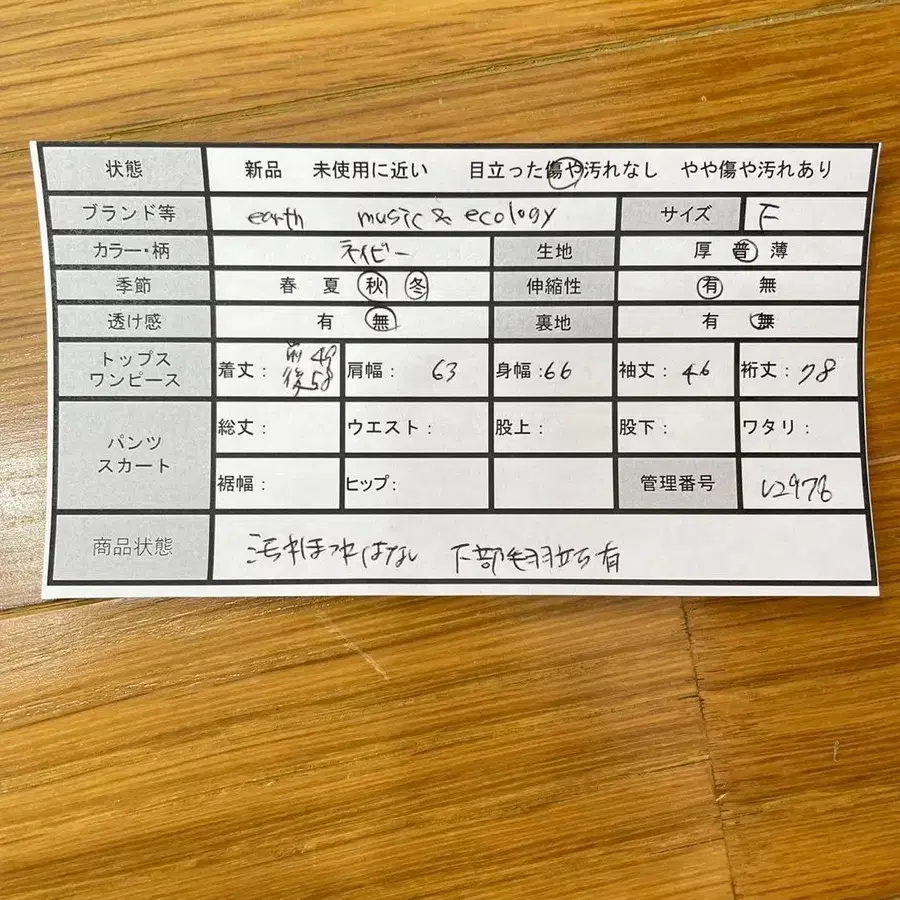 状態 新品 未使用に近い 目立った傷や汚れなし やや傷や汚れあり
ブランド等 earth music & ecology サイズ F
カラー・柄 ネイビー 生地 厚 普 薄
季節 春 夏 秋 冬 伸縮性 有 無
透け感 有 無 裏地 有 無
トップス ワンピース 着丈: 前49 後58 肩幅: 63 身幅:66 袖丈: 46 裄丈: 78
パンツ スカート 総丈: ウエスト: 股上: 股下: ワタリ:
裾幅: ヒップ: 管理番号 V2978
商品状態 汚れほつれはない 下部毛羽立ち有